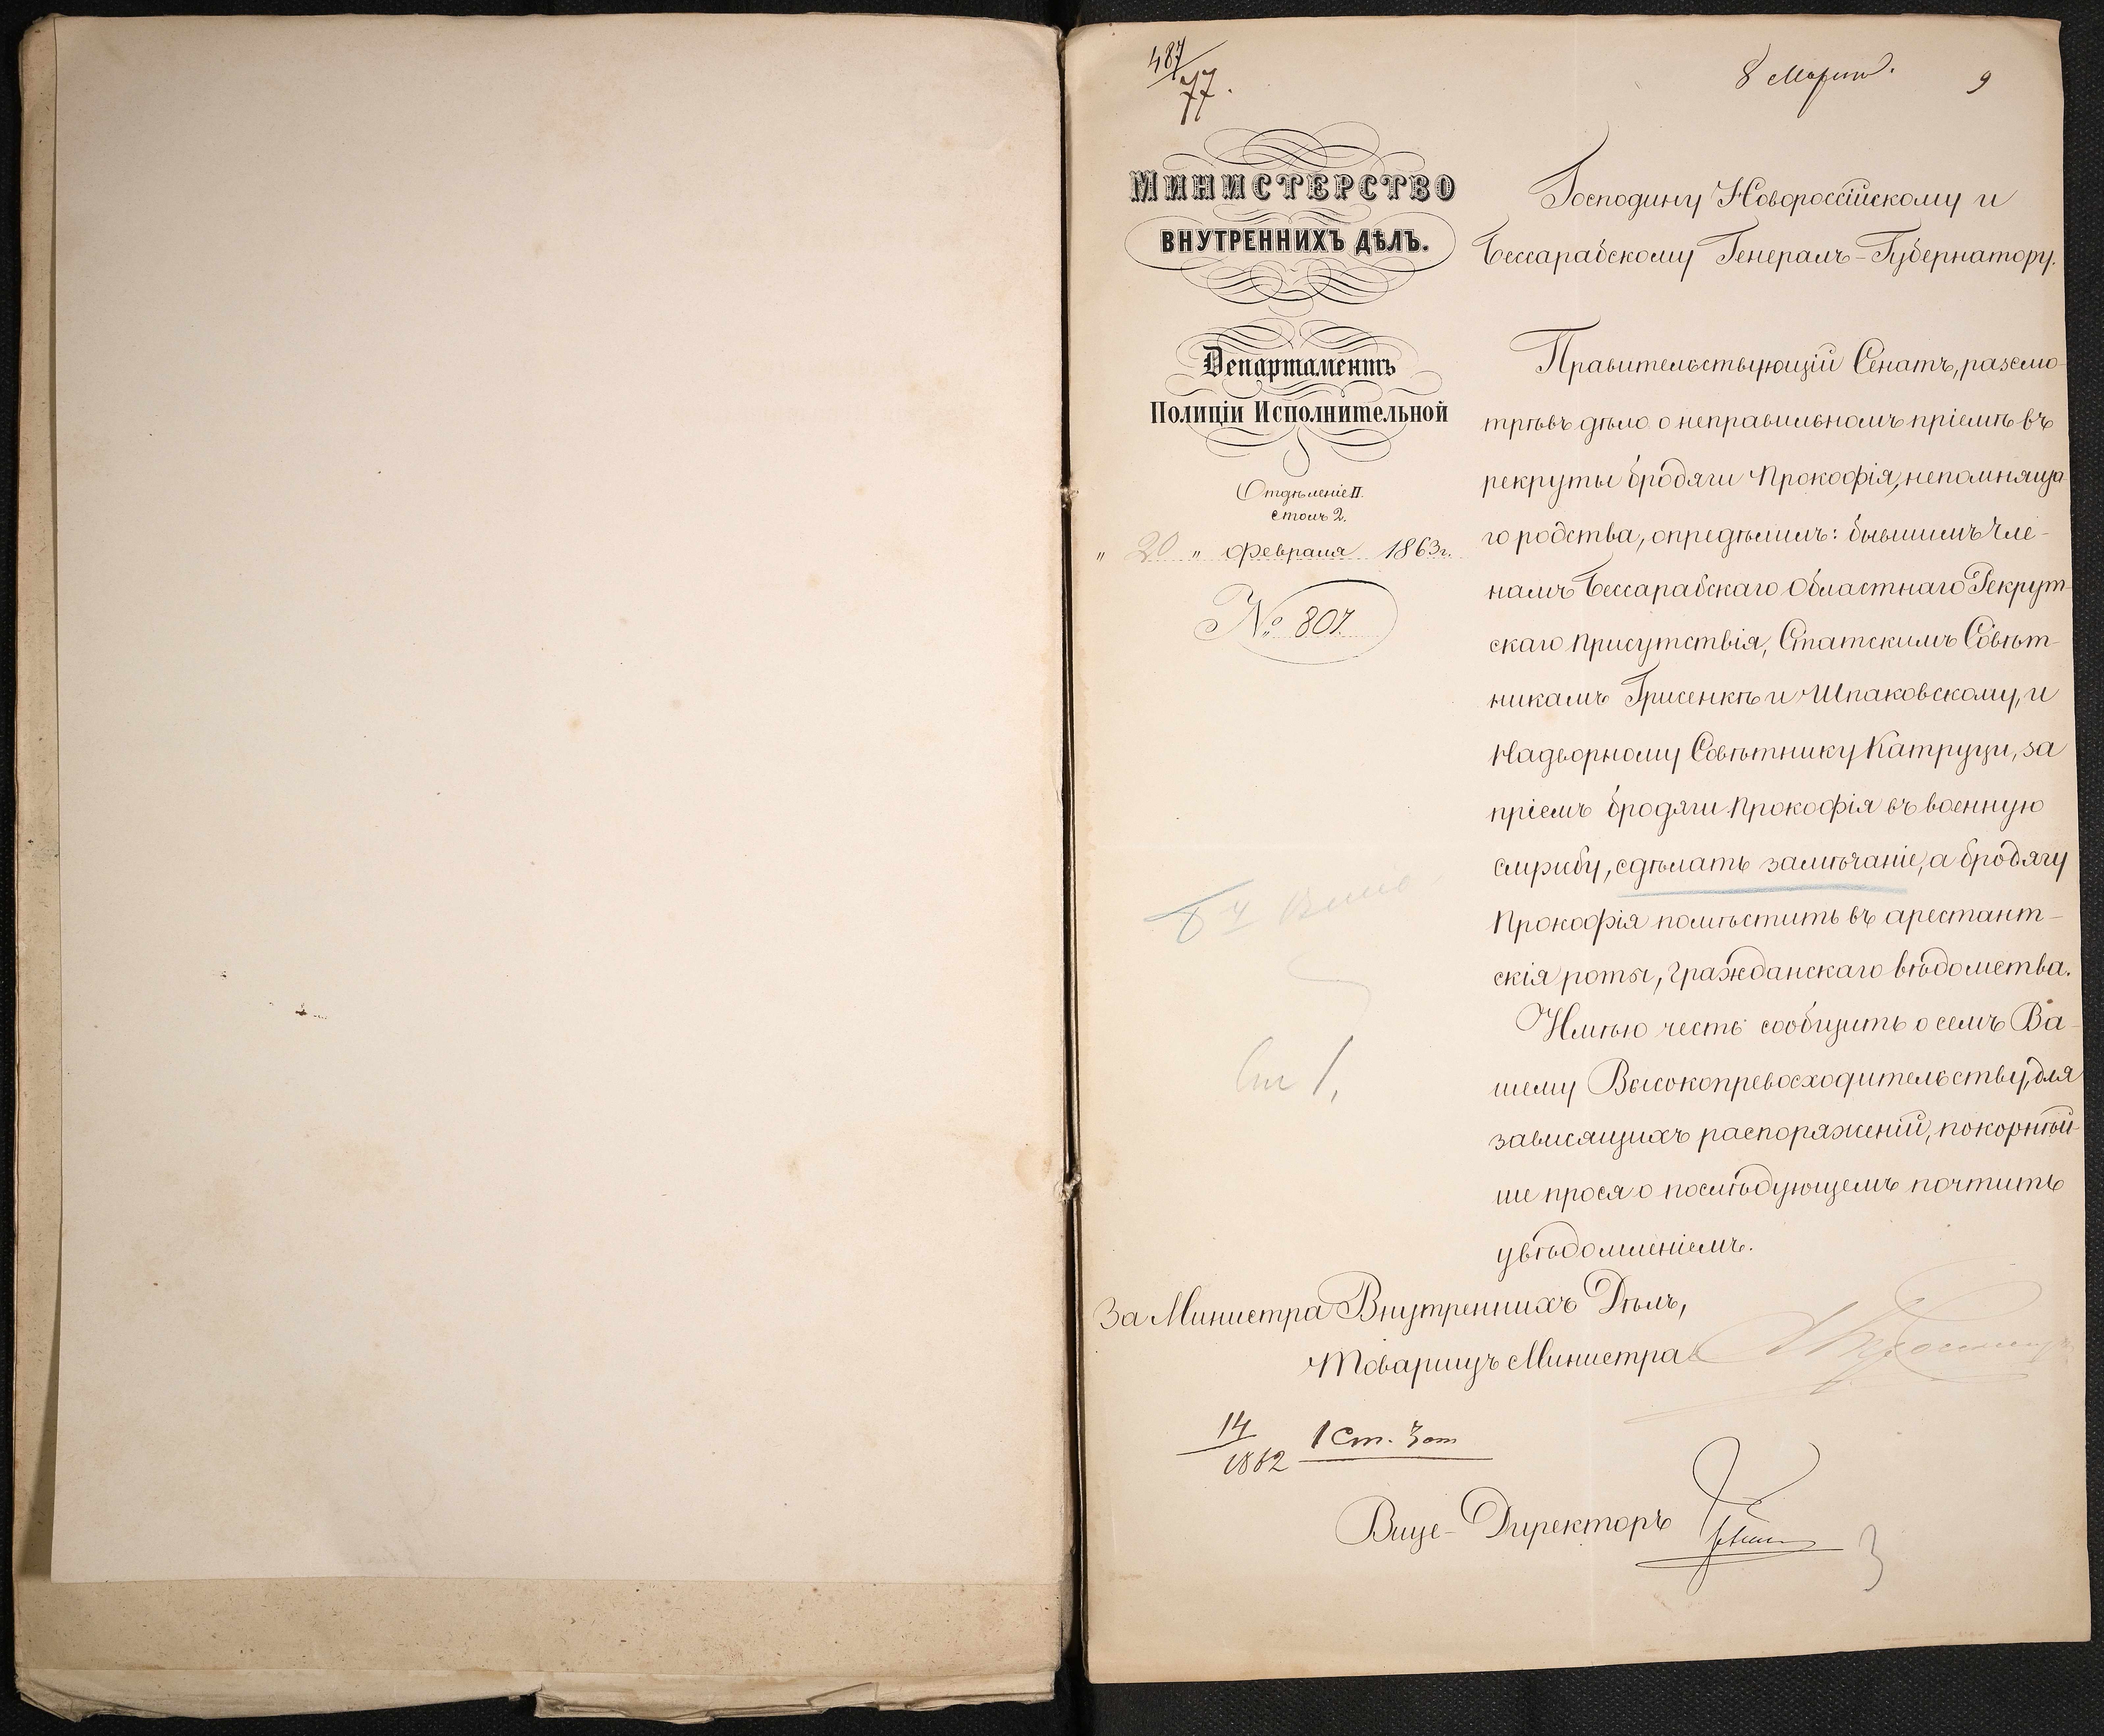 487/77.
8 Марта.
9
МИНИСТЕРСТВО
ВНУТРЕННИХЪ ДѢЛЪ.
Департаментъ
Полиціи Исполнительной
Отдѣленіе II.
столъ 2.
" 20 " февраля 1863 г.
№ 807.
Господину Новороссійскому и
Бессарабскому Генералъ-Губернатору.
Правительствующій Сенатъ, разсмо-
трѣвъ дѣло о неправильномъ пріемѣ въ
рекруты бродяги Прокофія, непомняща-
го родства, опредѣлилъ: бывшимъ Чле-
намъ Бессарабскаго Областнаго Рекрут-
скаго Присутствія, Статскимъ Совѣт-
никамъ Грисенкѣ и Шпаковскому, и
Надворному Совѣтнику Катруци, за
пріемъ бродяги Прокофія въ военную
службу, сдѣлать замѣчаніе, а бродягу
Прокофія помѣстить въ арестант-
скія роты, гражданскаго вѣдомства.
Имѣю честь сообщить о семъ Ва-
шему Высокопревосходительству, для
зависящихъ распоряженій, покорнѣй-
ше прося о послѣдующемъ почтить
увѣдомленіемъ.
За Министра Внутреннихъ Дѣлъ,
Товарищъ Министра
14/1862 1 Ст. 3 от
Вице-Директоръ
3